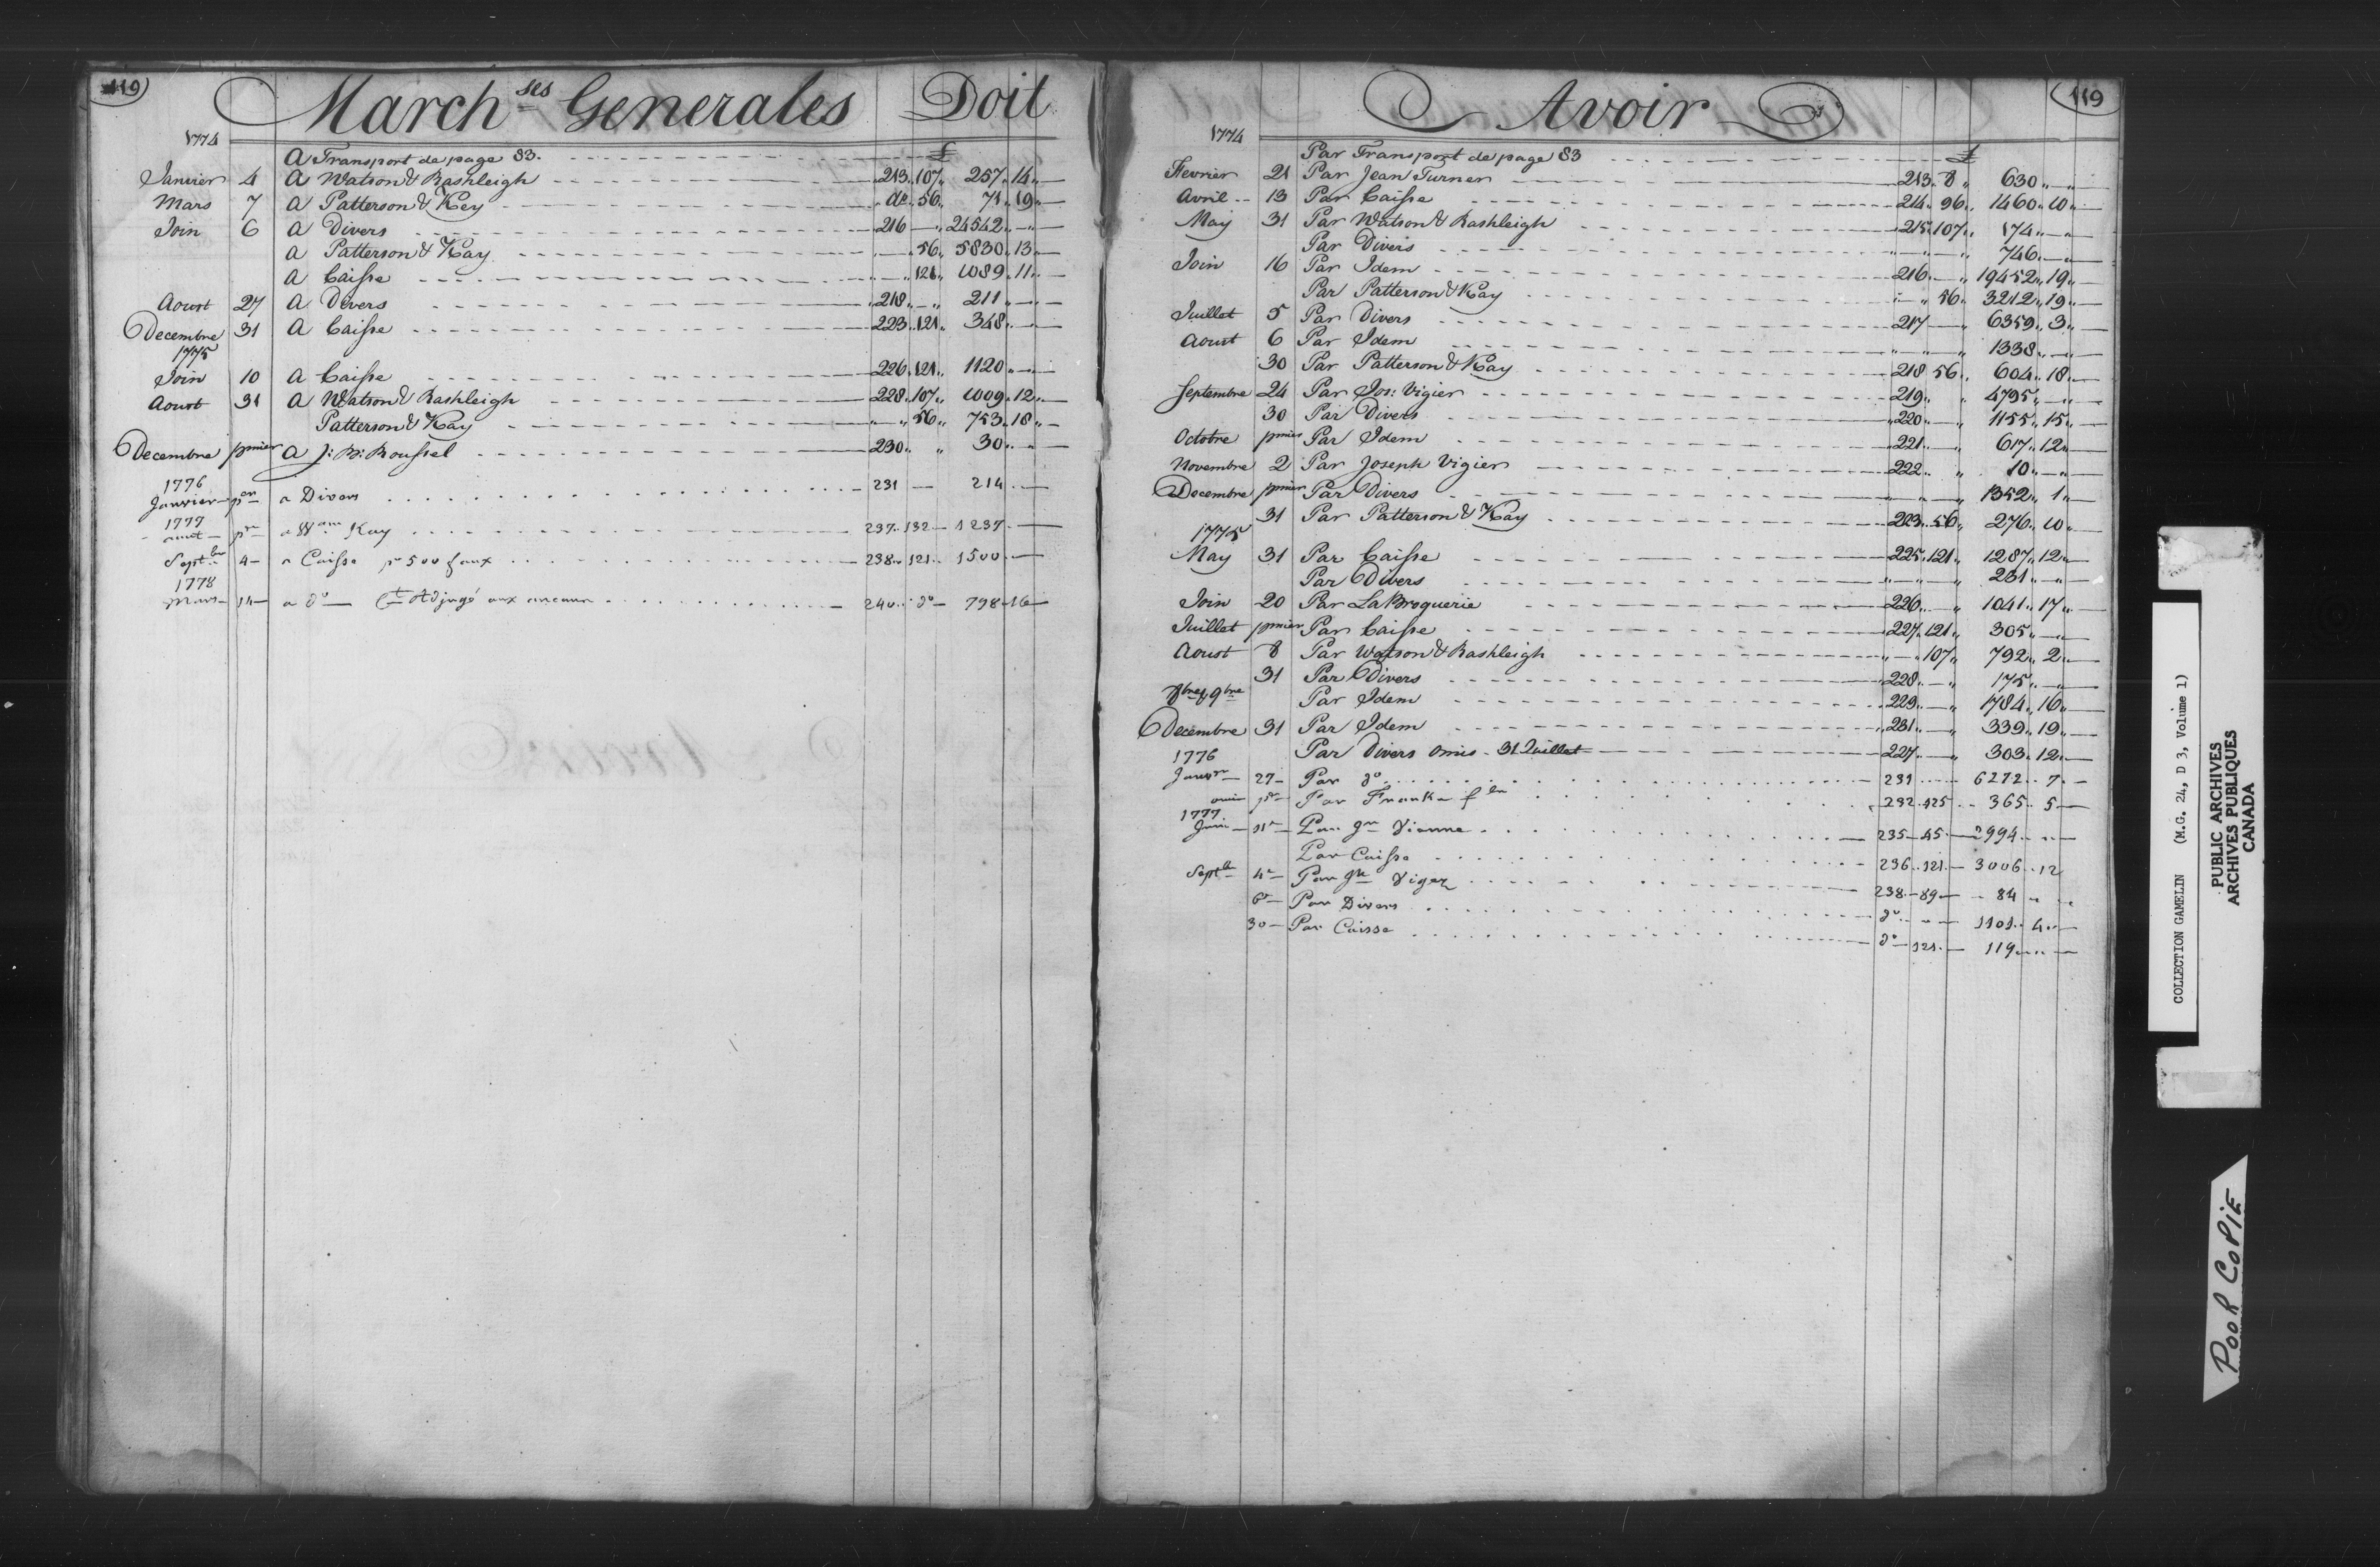 119
March.ses Generales Doit
1774
A Transport de page 83. £
Janvier 4 A Watson & Rashleigh 213. 107. 257. 14
Mars 7 A Patterson & Key do. 56. 71. 19
Join 6 A Divers 216 24542.
A Patterson & Kay 56. 5830. 13
A Caisse 121. 1089. 11
Aoust 27 A Divers 218. 211
Decembre 31 A Caisse 223. 121. 348.
1775
Join 10 A Caisse 226. 121. 1120
Aoust 31 A Watson & Rashleigh 228. 107. 1009. 12
Patterson & Kay 56. 753. 18
Decembre pmier A J: B: Roussel 230. 30
1776
Janvier per a Divers 231 214
1777
aout pr a Wam Kay 237. 132 1237
Septbre 4 a Caisse pr 500 faux 238. 121. 1500
1778
Mars 14 a do Ct Adjugé aux encans 240. do 798. 16
119
Avoir
1774
Par Transport de page 83 £
Fevrier 21 Par Jean Turner 213. 8. 630
Avril 13 Par Caisse 214. 96. 1460. 10
May 31 Par Watson & Rashleigh 215. 107. 174
Par Divers 746
Join 16 Par Idem 216. 19452. 19
Par Patterson & Kay 56. 3212. 19
Juillet 5 Par Divers 217 6359. 3
Aoust 6 Par Idem 1338
30 Par Patterson & Kay 218 56. 604. 18
Septembre 24 Par Jos: Vigier 219. 4795
30 Par Divers 220 1155. 15
Octobre pmier Par Idem 221. 617. 12
Novembre 2 Par Joseph Vigier 222. 10
Decembre pmier Par Divers 1352. 1
31 Par Patterson & Kay 223. 56. 276. 10
1775
May 31 Par Caisse 225. 121. 1287. 12
Par Divers 231
Join 20 Par LaBroquerie 226. 1041. 17
Juillet pmier Par Caisse 227. 121. 305
Aoust 8 Par Watson & Rashleigh 107. 792. 2
31 Par Divers 228. 175
8bre & 9bre Par Idem 229. 1784. 16
Decembre 31 Par Idem 231. 339. 19
Par Divers omis 31 Juillet 227. 303. 12
1776
Janvr 27 Par do 231 6272. 7
pr Par Franks 232. 125 365. 5
1777
Juin 11 Par Vienne 235 45 2994
Par Caisse 236. 121 3006. 12
Septbre 4 Par Viger 238 89 84
6 Par Divers do 1101. 4
30 Par Caisse do 121. 119
COLLECTION GAMELIN (M.G. 24, D 3, Volume 1)
PUBLIC ARCHIVES
ARCHIVES PUBLIQUES
CANADA
POOR COPIE